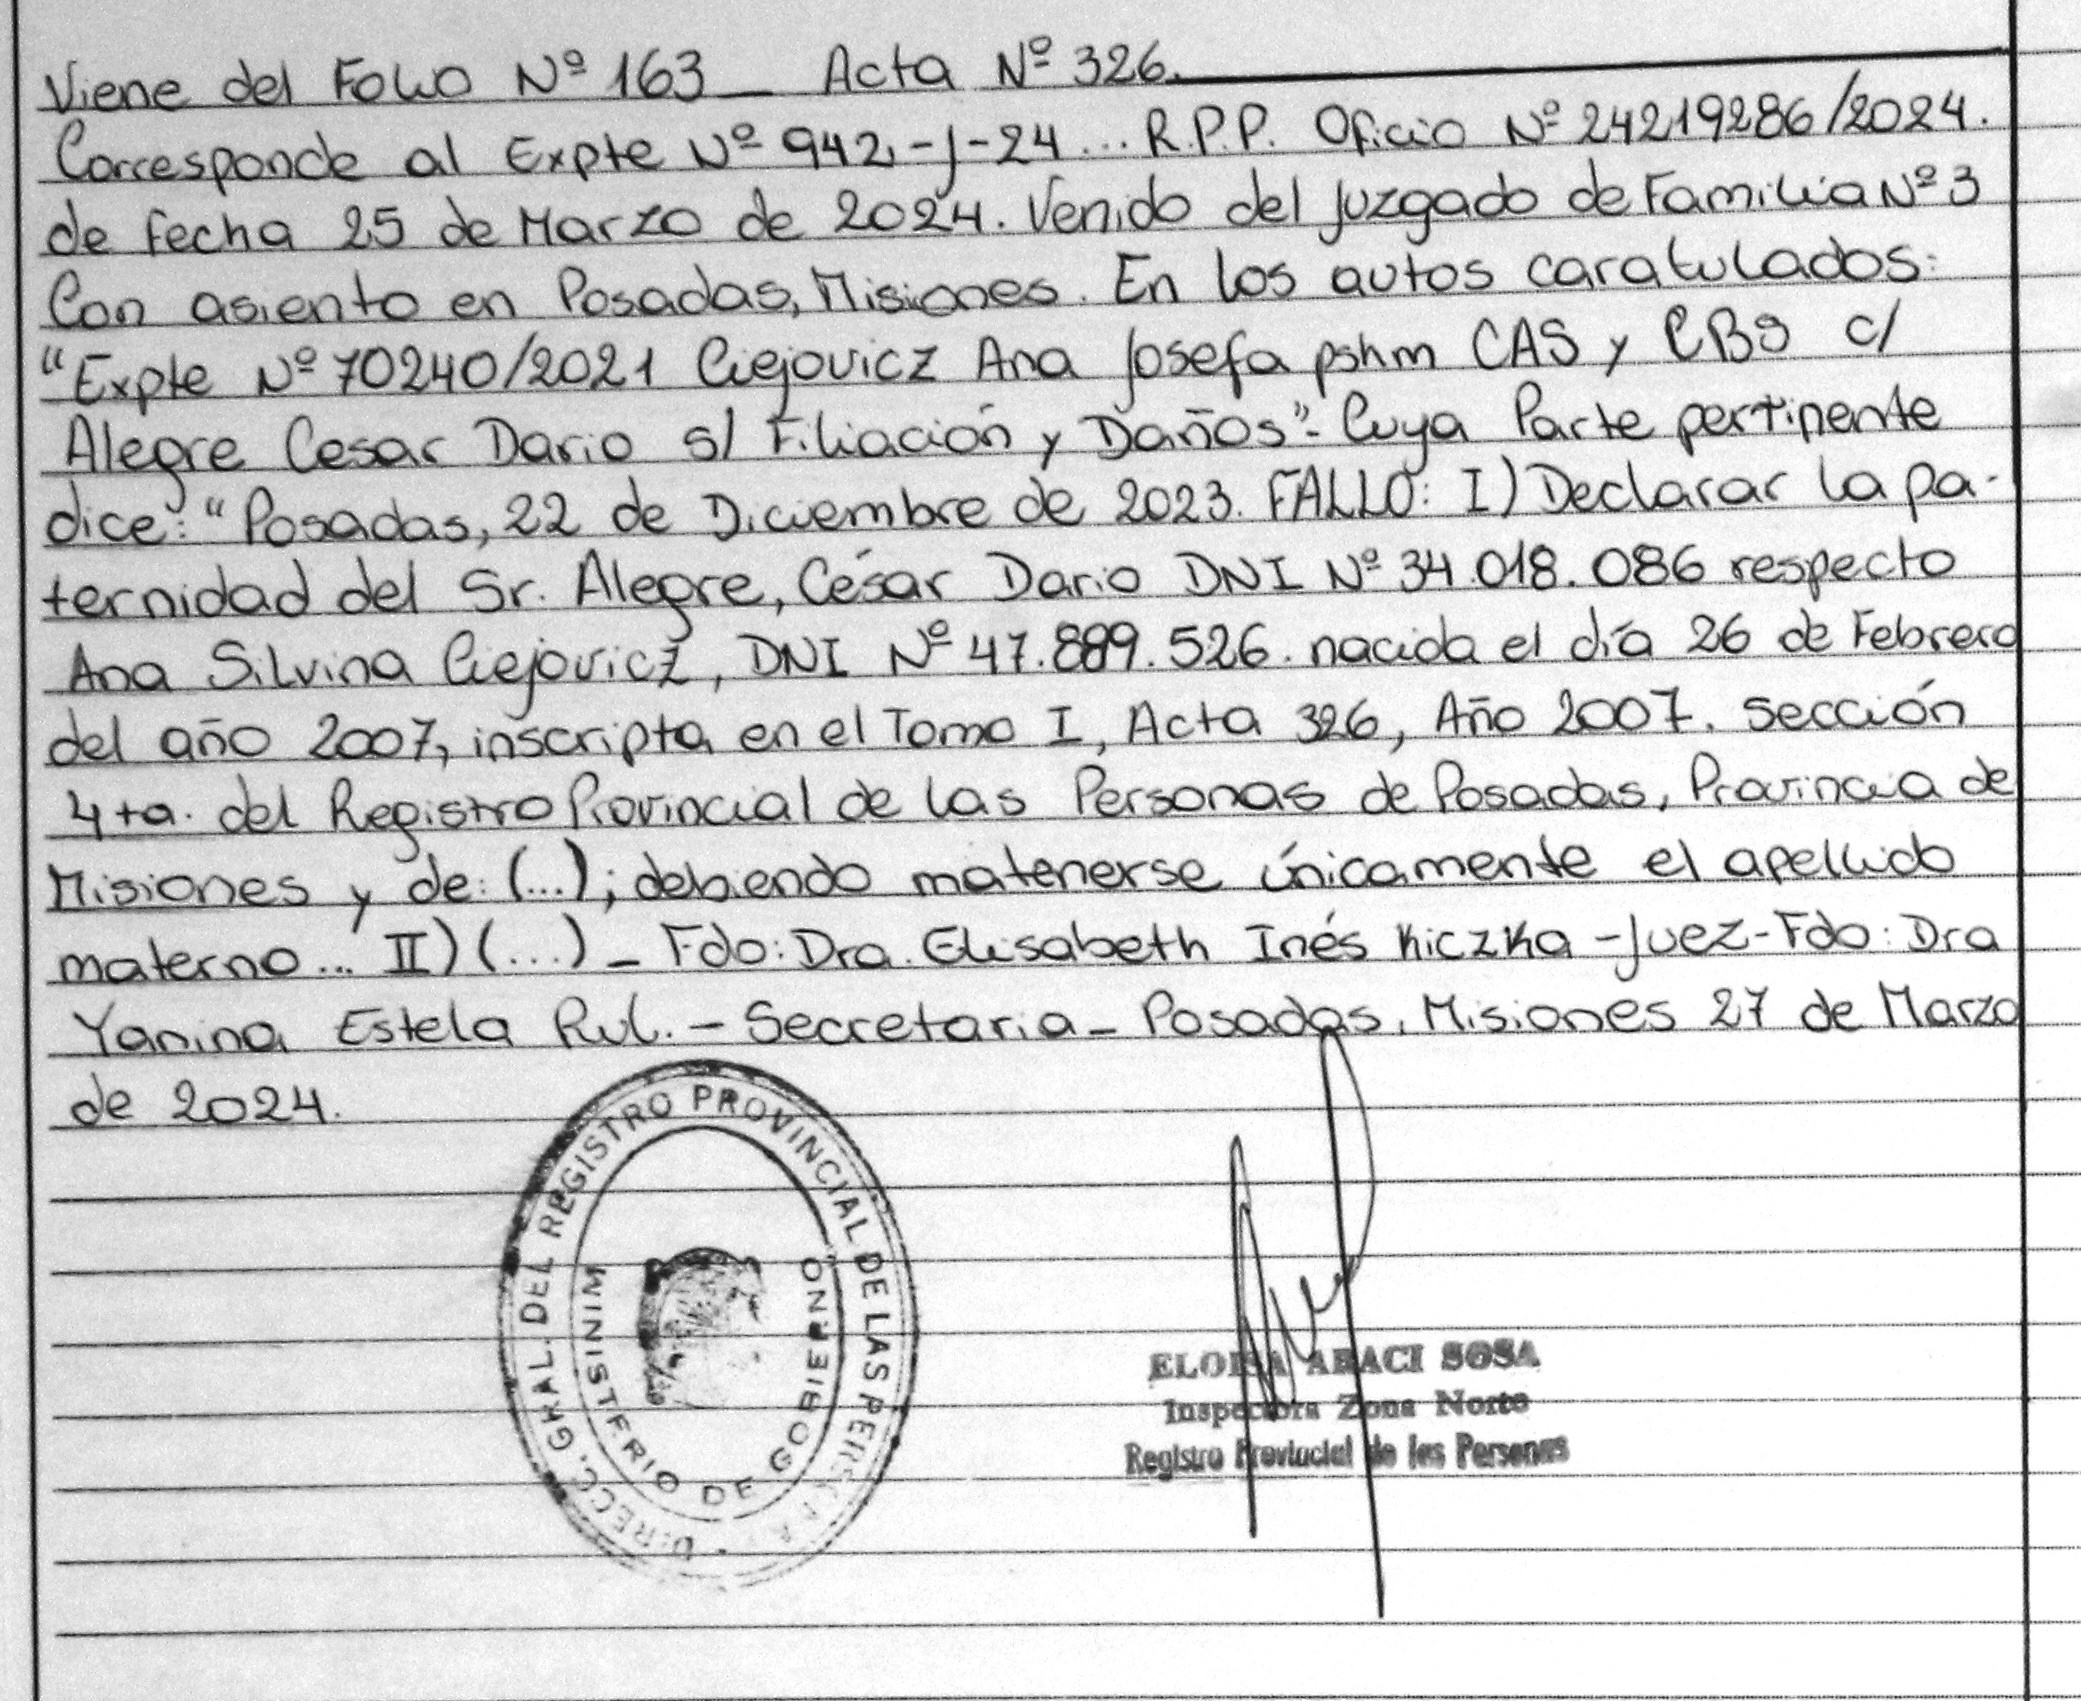 Viene del Folio Nº 163 _ Acta Nº 326.
Corresponde al Expte Nº 942-J-24... R.P.P. Oficio Nº 24219286/2024.
de fecha 25 de Marzo de 2024. Venido del Juzgado de Familia Nº 3
Con asiento en Posadas, Misiones. En los autos caratulados:
"Expte Nº 70240/2021 Ciejovicz Ana Josefa pshm CAS y CBS c/
Alegre Cesar Dario s/ Filiación y Daños"- Cuya Parte pertinente
dice: "Posadas, 22 de Diciembre de 2023. FALLO: I) Declarar la pa-
ternidad del Sr. Alegre, César Dario DNI Nº 34.018.086 respecto
Ana Silvina Ciejovicz, DNI Nº 47.889.526. nacida el día 26 de Febrero
del año 2007, inscripta en el Tomo I, Acta 326, Año 2007. Sección
4ta. del Registro Provincial de las Personas de Posadas, Provincia de
Misiones y de: (...); debiendo matenerse únicamente el apellido
materno... II) (...) _ Fdo: Dra. Elisabeth Inés Kiczka - Juez - Fdo: Dra
Yanina Estela Rul. - Secretaria _ Posadas, Misiones 27 de Marzo
de 2024.
DIRECC. GRAL. DEL REGISTRO PROVINCIAL DE LAS
MINISTERIO DE GOBIERNO
ELOISA ARACI SOSA
Inspectora Zona Norte
Registro Provincial de las Personas